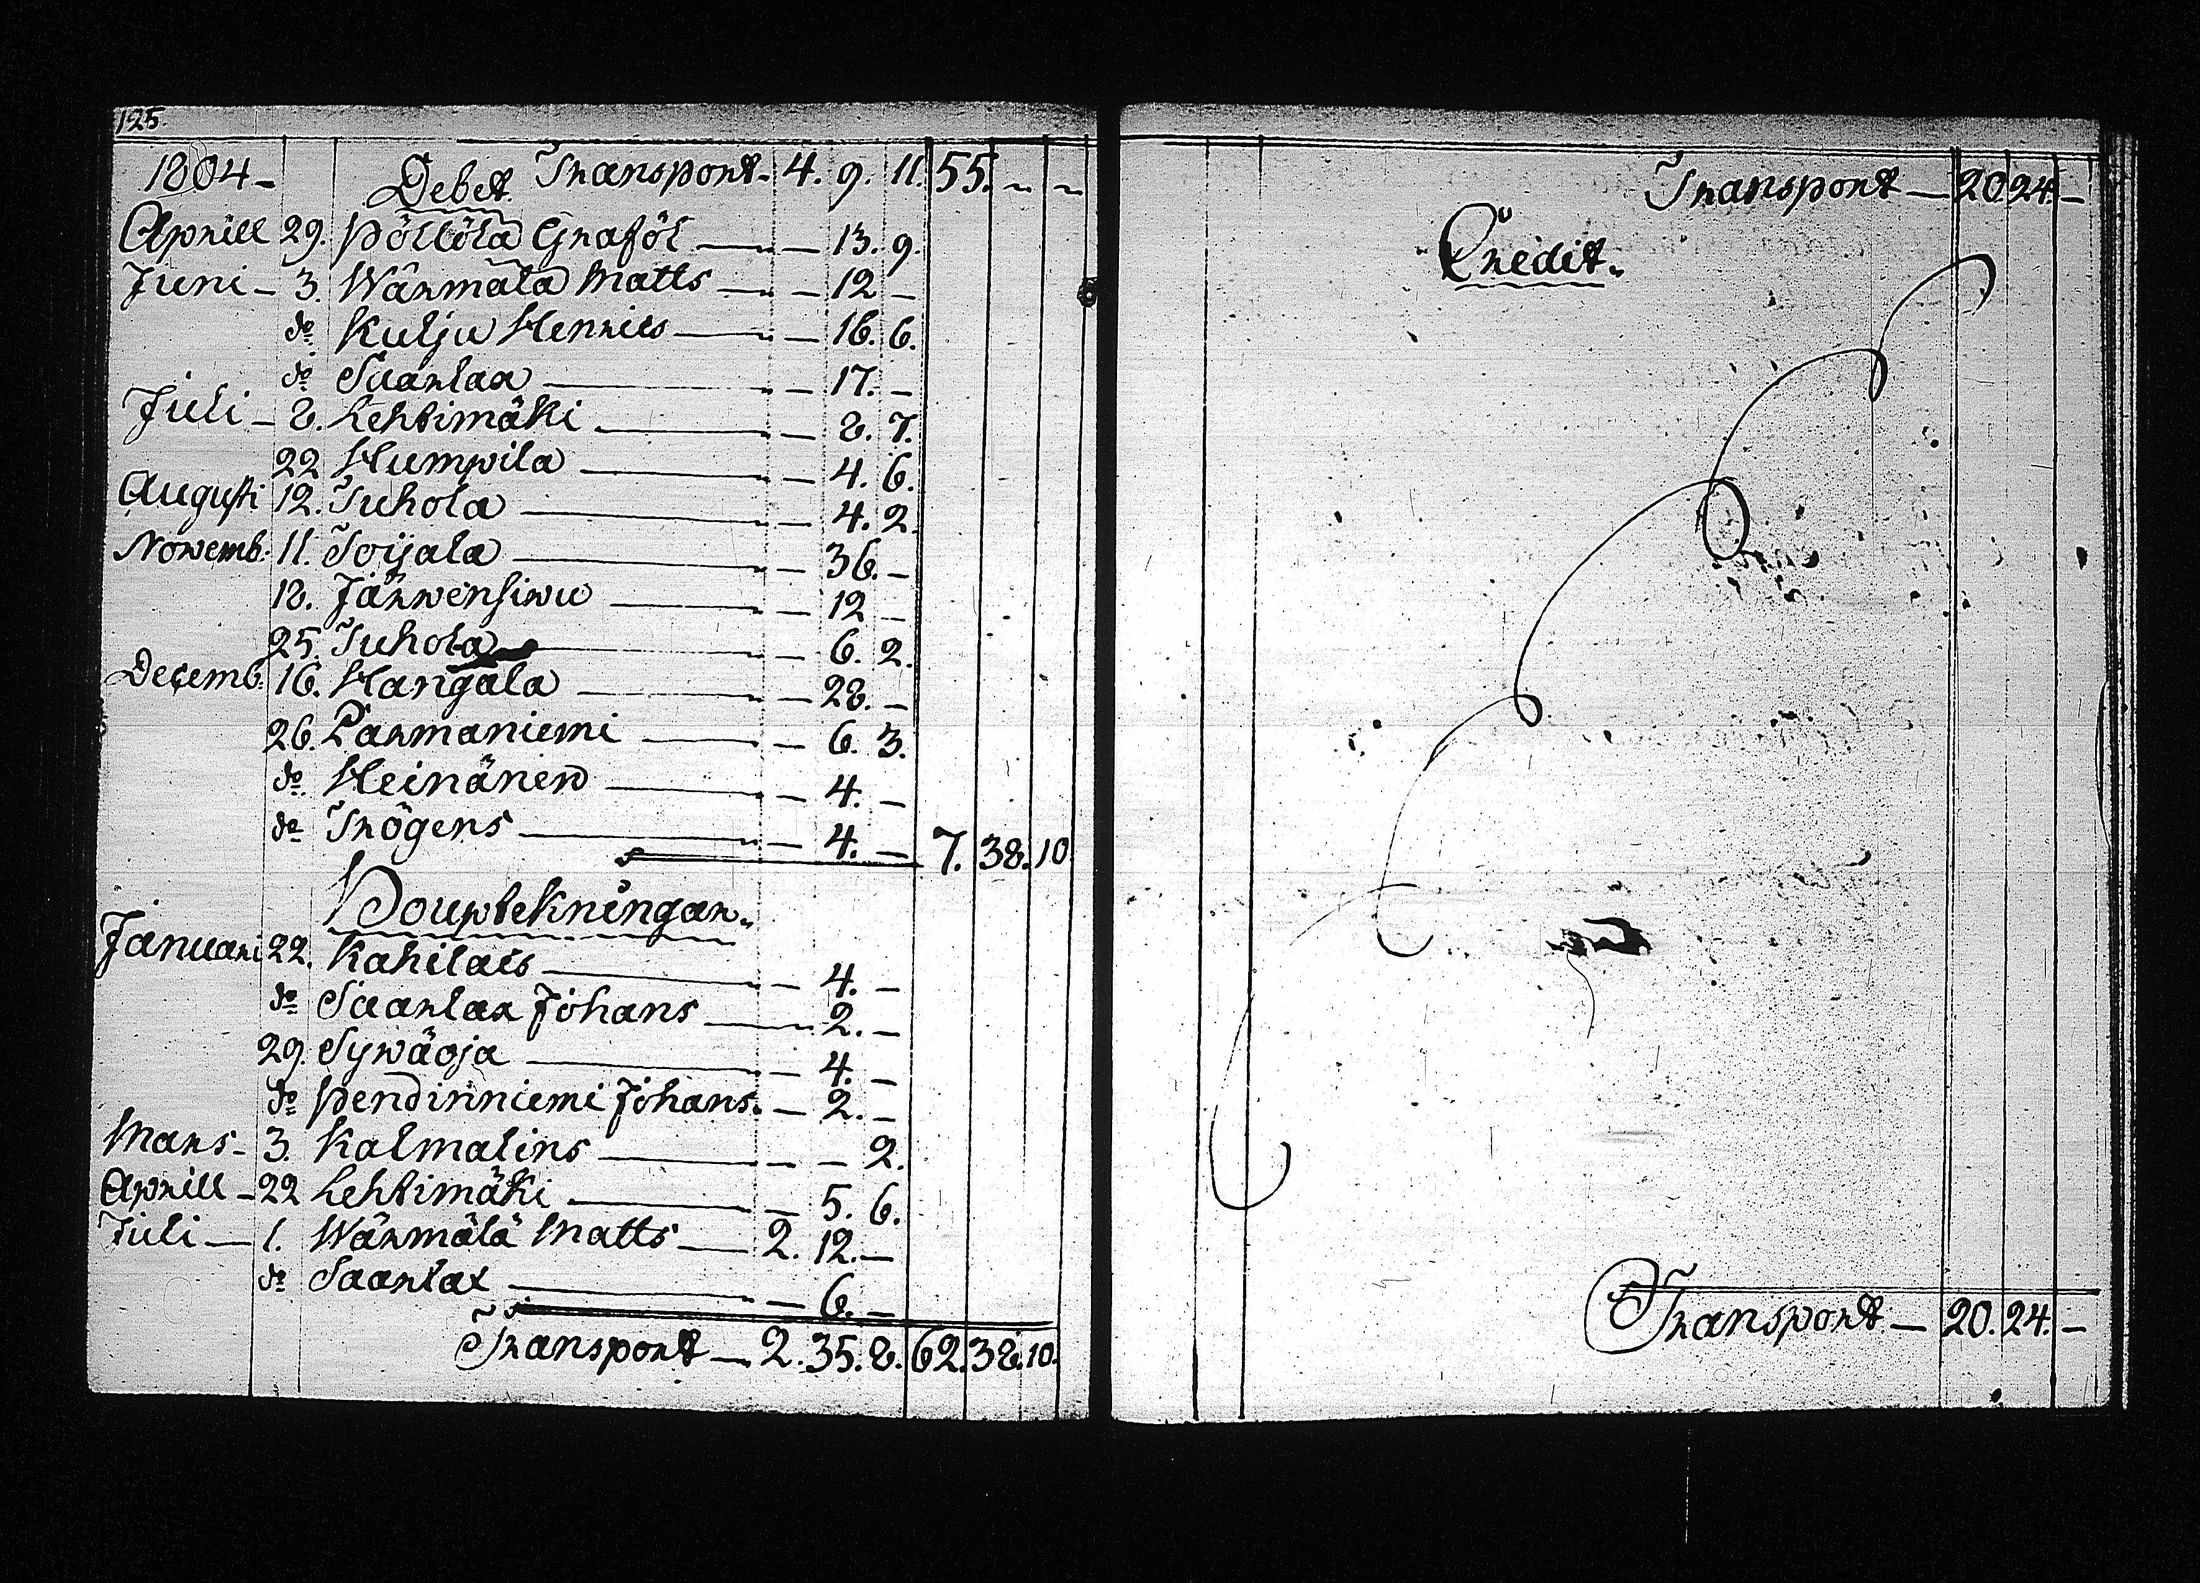 125.
1804 - Debet. Transport - 4. 9. 11. 55. - -
Aprill 29. Pöllölä Grafööl — 13. 9.
Juni - 3. Wänmälä Matts — 12 -
do Kulju Henrics — 16. 6.
do Suarlax — 17. -
Juli - 8. Lehtimäki — 8. 7.
22 Humpila — 4. 6.
Augusti 12. Tuhola — 4. 2
Novemb. 11. Toijala — 36. -
18. Järwensiwu — 12 -
25. Tuhola — 6. 2.
Decemb. 16. Hangala — 28. -
26. Parmaniemi — 6. 3.
do Heinänen — 4. -
do Trögens — 4. - 7. 38. 10
Januari 22. Kahilais — 4. -
do Saarlax Johans — 2. -
29. Sywäoja — 4. -
do Pendinniemi Johans. — 2. -
Mars - 3. Kalmalins — - 2.
Aprill - 22 Lehtimäki — 5. 6.
Juli — 1. Wärmälä Matts — 2. 12. -
do Saarlax — 6. -
Transport — 2. 35. 8. 62. 38. 10.
Transport — 20 24. -
Credit.
Transport — 20. 24. -